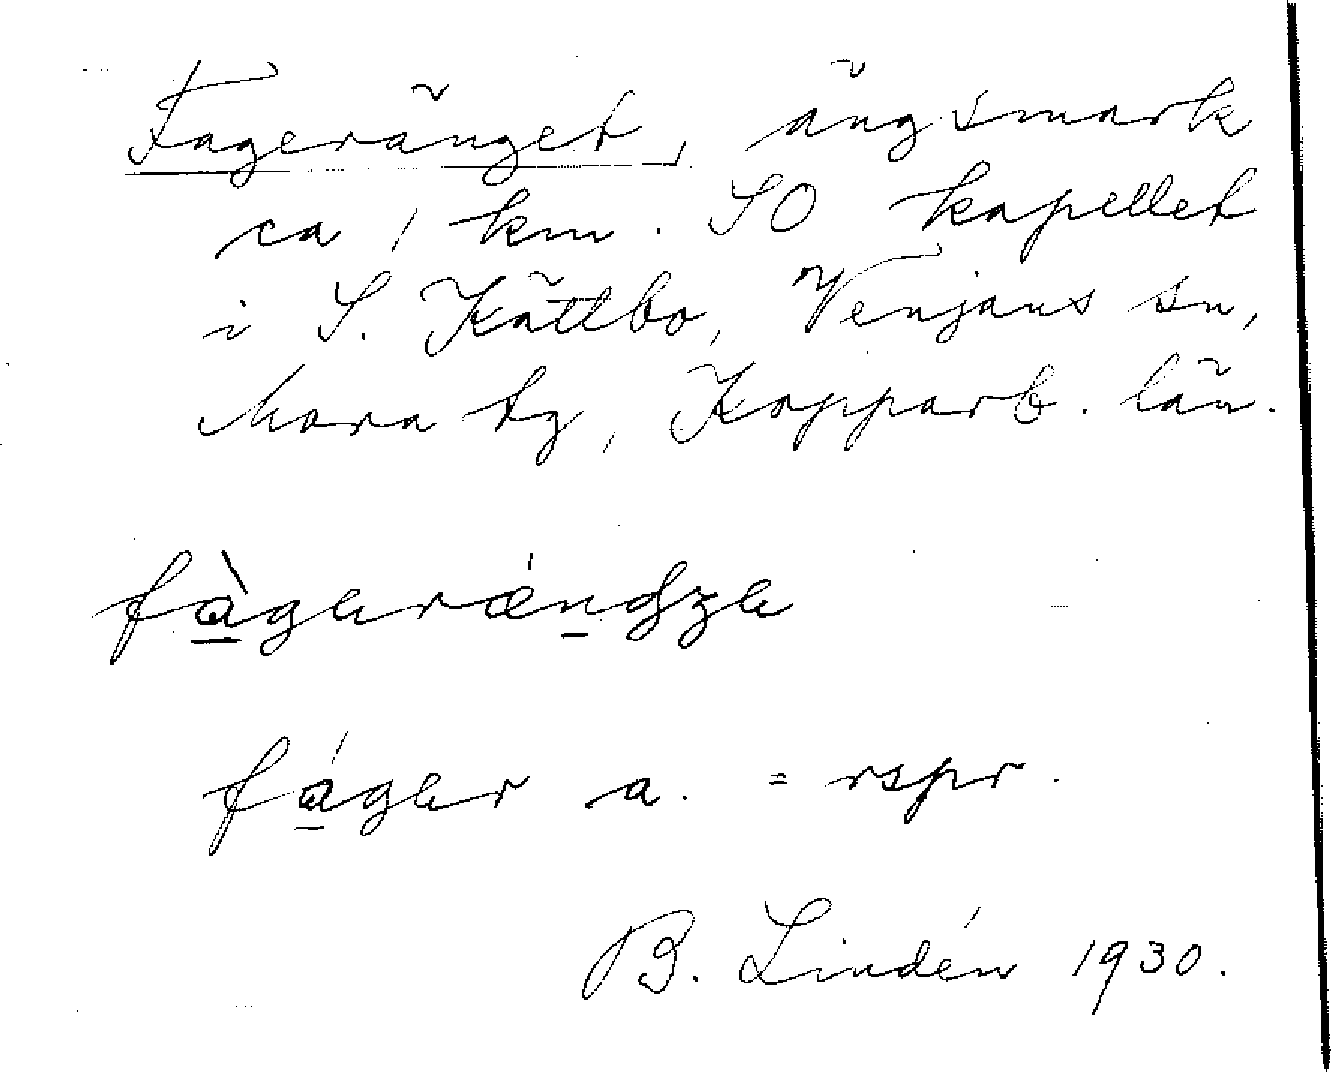 Fageränget, ängsmark
ca 1 km. SO kapellet
i S. Kättbo, Venjans sn,
Mora tg, Kopparb. län.
fàgərǽndzə
fágər a. = rspr.
B. Lindén 1930.